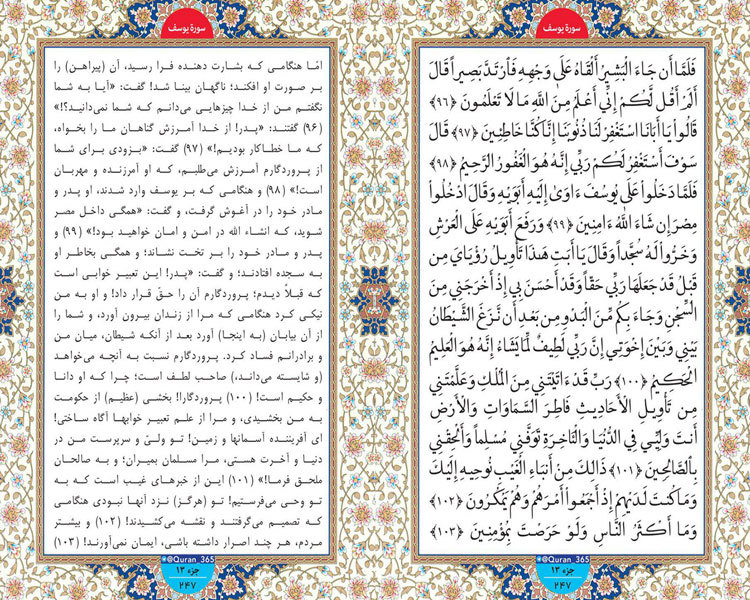 سورة یوسف
فَلَمَّا أَن جَاءَ الْبَشِيرُ أَلْقَاهُ عَلَىٰ وَجْهِهِ فَارْتَدَّ بَصِيراً قَالَ
أَلَمْ أَقُل لَّكُمْ إِنِّي أَعْلَمُ مِنَ اللَّهِ مَا لَا تَعْلَمُونَ ﴿۹۶﴾
قَالُوا يَا أَبَانَا اسْتَغْفِرْ لَنَا ذُنُوبَنَا إِنَّا كُنَّا خَاطِئِينَ ﴿۹۷﴾ قَالَ
سَوْفَ أَسْتَغْفِرُ لَكُمْ رَبِّي إِنَّهُ هُوَ الْغَفُورُ الرَّحِيمُ ﴿۹۸﴾
فَلَمَّا دَخَلُوا عَلَىٰ يُوسُفَ ءَاوَىٰ إِلَيْهِ أَبَوَيْهِ وَقَالَ ادْخُلُوا
مِصْرَ إِن شَاءَ اللَّهُ ءَامِنِينَ ﴿۹۹﴾ وَرَفَعَ أَبَوَيْهِ عَلَى الْعَرْشِ
وَخَرُّوا لَهُ سُجَّداً وَقَالَ يَا أَبَتِ هَٰذَا تَأْوِيلُ رُؤْيَايَ مِن
قَبْلُ قَدْ جَعَلَهَا رَبِّي حَقّاً وَقَدْ أَحْسَنَ بِي إِذْ أَخْرَجَنِي مِنَ
السِّجْنِ وَجَاءَ بِكُم مِّنَ الْبَدْوِ مِن بَعْدِ أَن نَّزَغَ الشَّيْطَانُ
بَيْنِي وَبَيْنَ إِخْوَتِي إِنَّ رَبِّي لَطِيفٌ لِّمَا يَشَاءُ إِنَّهُ هُوَ الْعَلِيمُ
الْحَكِيمُ ﴿۱۰۰﴾ رَبِّ قَدْ ءَاتَيْتَنِي مِنَ الْمُلْكِ وَعَلَّمْتَنِي
مِن تَأْوِيلِ الْأَحَادِيثِ فَاطِرَ السَّمَاوَاتِ وَالْأَرْضِ
أَنتَ وَلِيِّي فِي الدُّنْيَا وَالْآخِرَةِ تَوَفَّنِي مُسْلِماً وَأَلْحِقْنِي
بِالصَّالِحِينَ ﴿۱۰۱﴾ ذَٰلِكَ مِنْ أَنبَاءِ الْغَيْبِ نُوحِيهِ إِلَيْكَ
وَمَا كُنتَ لَدَيْهِمْ إِذْ أَجْمَعُوا أَمْرَهُمْ وَهُمْ يَمْكُرُونَ ﴿۱۰۲﴾
وَمَا أَكْثَرُ النَّاسِ وَلَوْ حَرَصْتَ بِمُؤْمِنِينَ ﴿۱۰۳﴾
@Quran_365
جزء ۱۳
۲۴۷
سورة یوسف
امّا هنگامی که بشارت دهنده فرا رسید، آن (پیراهن) را
بر صورت او افکند؛ ناگهان بینا شد! گفت: «آیا به شما
نگفتم من از خدا چیزهایی می‌دانم که شما نمی‌دانید؟!»
(۹۶) گفتند: «پدر! از خدا آمرزش گناهان ما را بخواه،
که ما خطاکار بودیم!» (۹۷) گفت: «بزودی برای شما
از پروردگارم آمرزش می‌طلبم، که او آمرزنده و مهربان
است!» (۹۸) و هنگامی که بر یوسف وارد شدند، او پدر و
مادر خود را در آغوش گرفت، و گفت: «همگی داخل مصر
شوید، که انشاء الله در امن و امان خواهید بود!» (۹۹) و
پدر و مادر خود را بر تخت نشاند؛ و همگی بخاطر او
به سجده افتادند؛ و گفت: «پدر! این تعبیر خوابی است
که قبلاً دیدم؛ پروردگارم آن را حقّ قرار داد! و او به من
نیکی کرد هنگامی که مرا از زندان بیرون آورد، و شما را
از آن بیابان (به اینجا) آورد بعد از آنکه شیطان، میان من
و برادرانم فساد کرد. پروردگارم نسبت به آنچه می‌خواهد
(و شایسته می‌داند،) صاحب لطف است؛ چرا که او دانا
و حکیم است! (۱۰۰) پروردگارا! بخشی (عظیم) از حکومت
به من بخشیدی، و مرا از علم تعبیر خوابها آگاه ساختی!
ای آفریننده آسمانها و زمین! تو ولیّ و سرپرست من در
دنیا و آخرت هستی، مرا مسلمان بمیران؛ و به صالحان
ملحق فرما!» (۱۰۱) این از خبرهای غیب است که به
تو وحی می‌فرستیم! تو (هرگز) نزد آنها نبودی هنگامی
که تصمیم می‌گرفتند و نقشه می‌کشیدند! (۱۰۲) و بیشتر
مردم، هر چند اصرار داشته باشی، ایمان نمی‌آورند! (۱۰۳)
@Quran_365
جزء ۱۳
۲۴۷